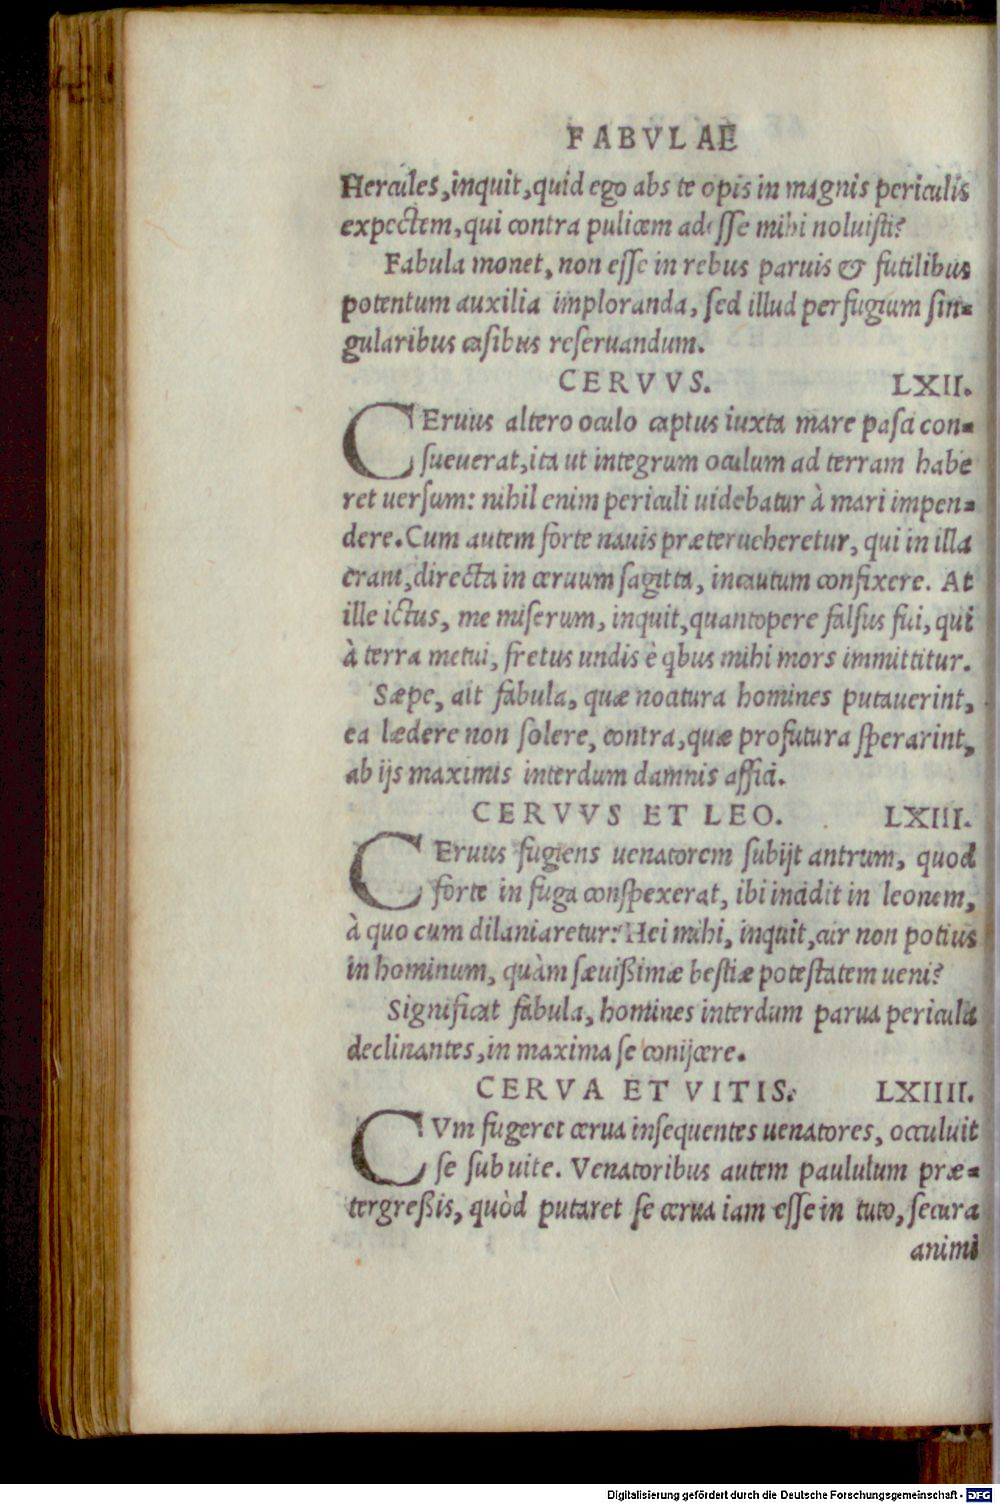 FABVLAE
Hercules, inquit, quid ego abs te opis in magnis periculis
expectem, qui contra pulicem adesse mihi noluisti?
Fabula monet, non esse in rebus paruis & futilibus
potentum auxilia imploranda, sed illud perfugium sin=
gularibus casibus reseruandum.
CERVVS. LXII.
CEruus altero oculo captus iuxta mare pasci con=
sueuerat, ita ut integrum oculum ad terram habe
ret uersum: nihil enim periculi uidebatur à mari impen=
dere. Cum autem forte nauis præterueheretur, qui in illa
erant, directa in ceruum sagitta, incautum confixere. At
ille ictus, me miserum, inquit, quantopere falsus fui, qui
à terra metui, fretus undis è qbus mihi mors immittitur.
Sæpe, ait fabula, quæ nocitura homines putauerint,
ea lædere non solere, contra, quæ profutura sperarint,
ab ijs maximis interdum damnis affici.
CERVVS ET LEO. LXIII.
CEruus fugiens uenatorem subijt antrum, quod
forte in fuga conspexerat, ibi incidit in leonem,
à quo cum dilaniaretur: Hei mihi, inquit, cur non potius
in hominum, quàm sæuißimæ bestiæ potestatem ueni?
Significat fabula, homines interdum parua pericula
declinantes, in maxima se conijcere.
CERVA ET VITIS. LXIIII.
CVm fugeret cerua insequentes uenatores, occuluit
se sub uite. Venatoribus autem paululum præ=
tergreßis, quòd putaret se cerua iam esse in tuto, secura
animi
Digitalisierung gefördert durch die Deutsche Forschungsgemeinschaft - DFG